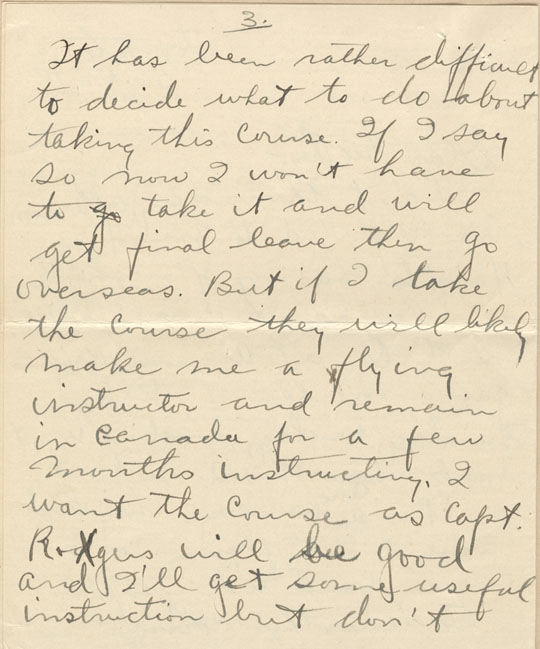 3.
It has been rather difficult
to decide what to do about
taking this course. If I say
so now I won't have
to go take it and will
get final leave then go
overseas. But if I take
the course they will likely
make me a flying
instructor and remain
in Canada for a few
months instructing. I
want the course as Capt.
Rodgers will be good
and I'll get some useful
instruction but don't